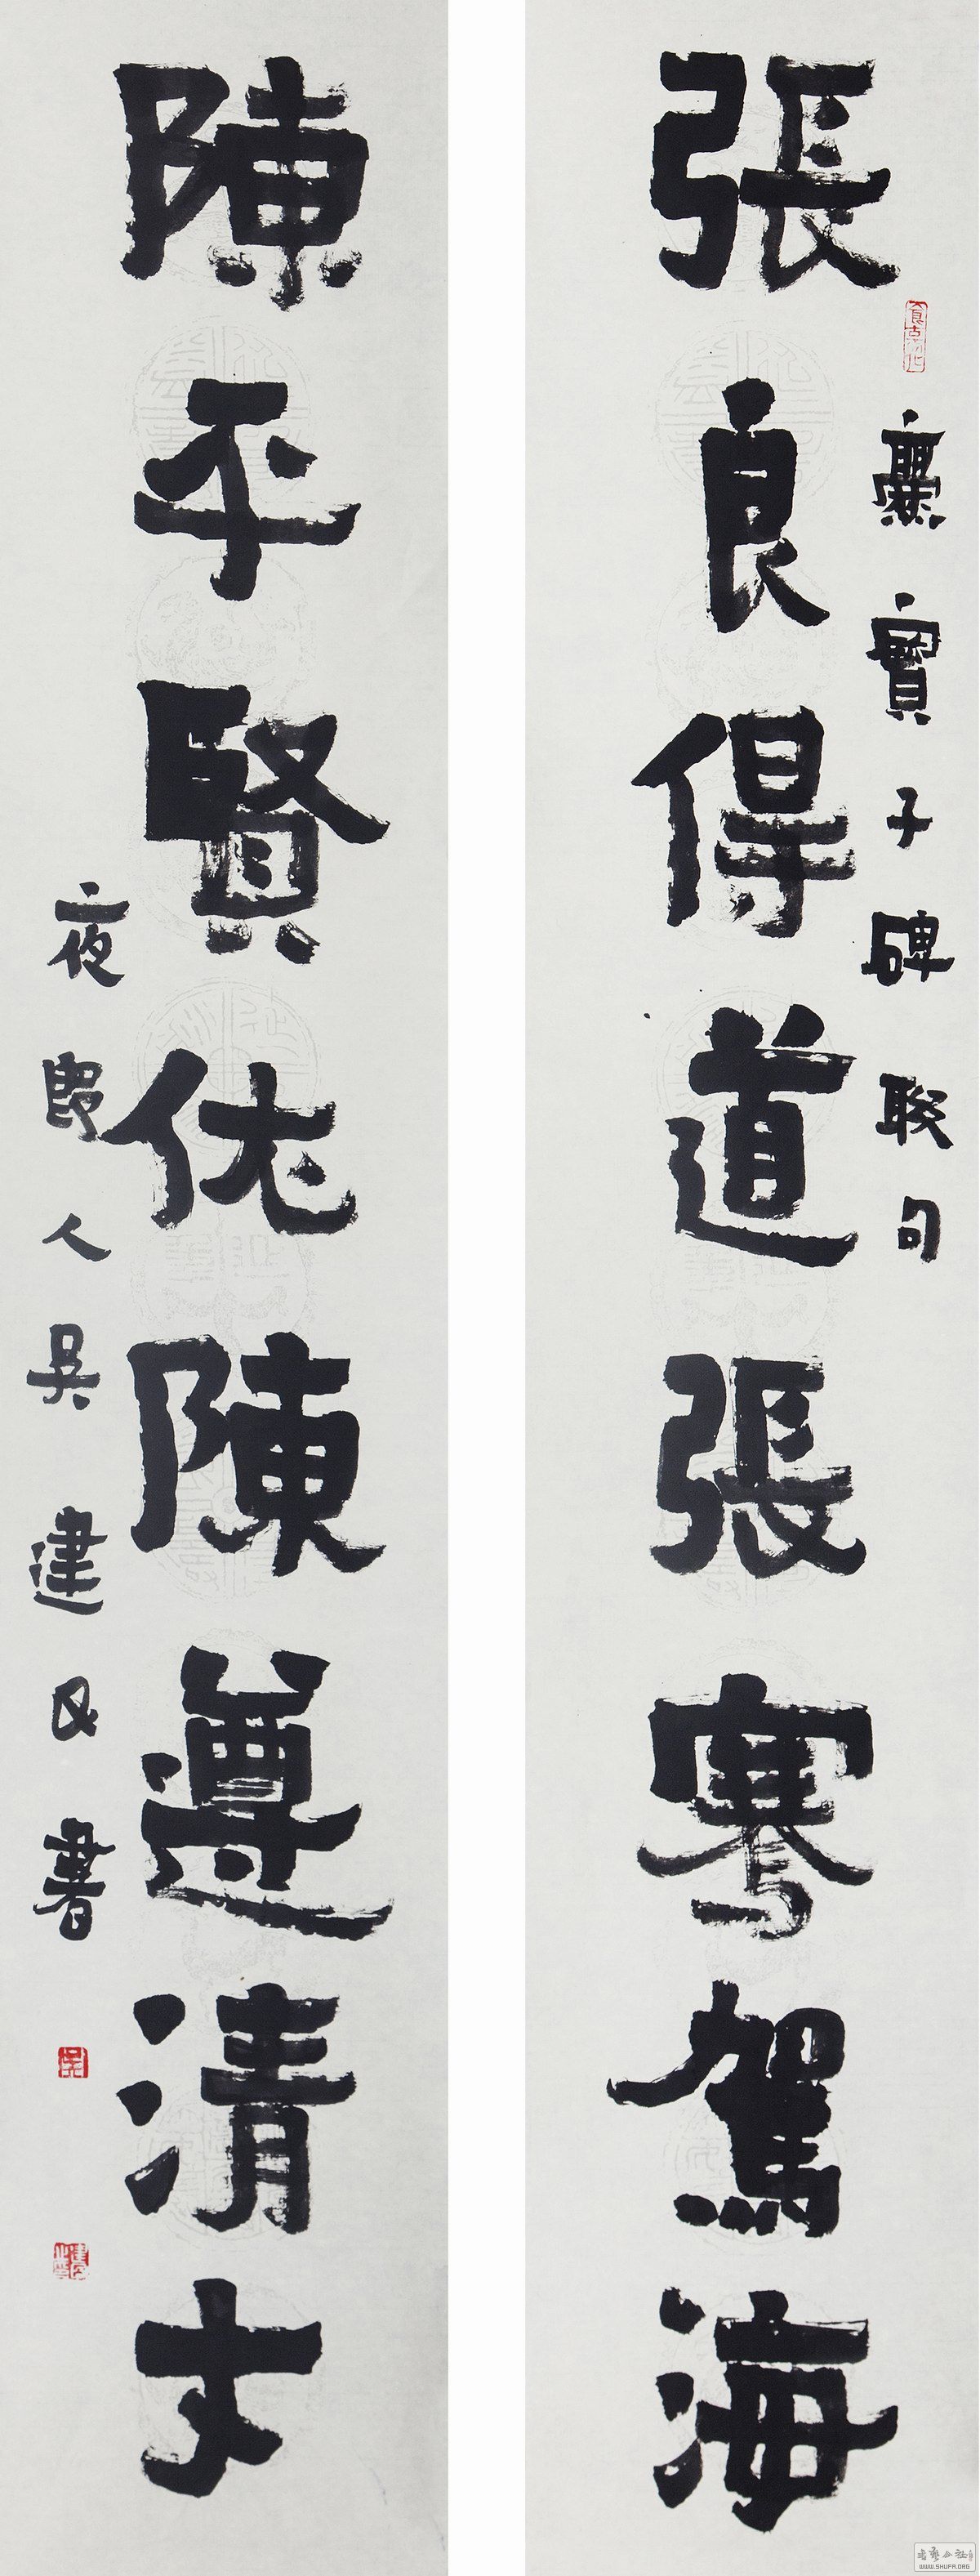 張良得道張騫駕海
爨寶子碑聯句
陳平賢佐陳遵清才
夜郎人吳建民書
WWW.SHUFA.ORG